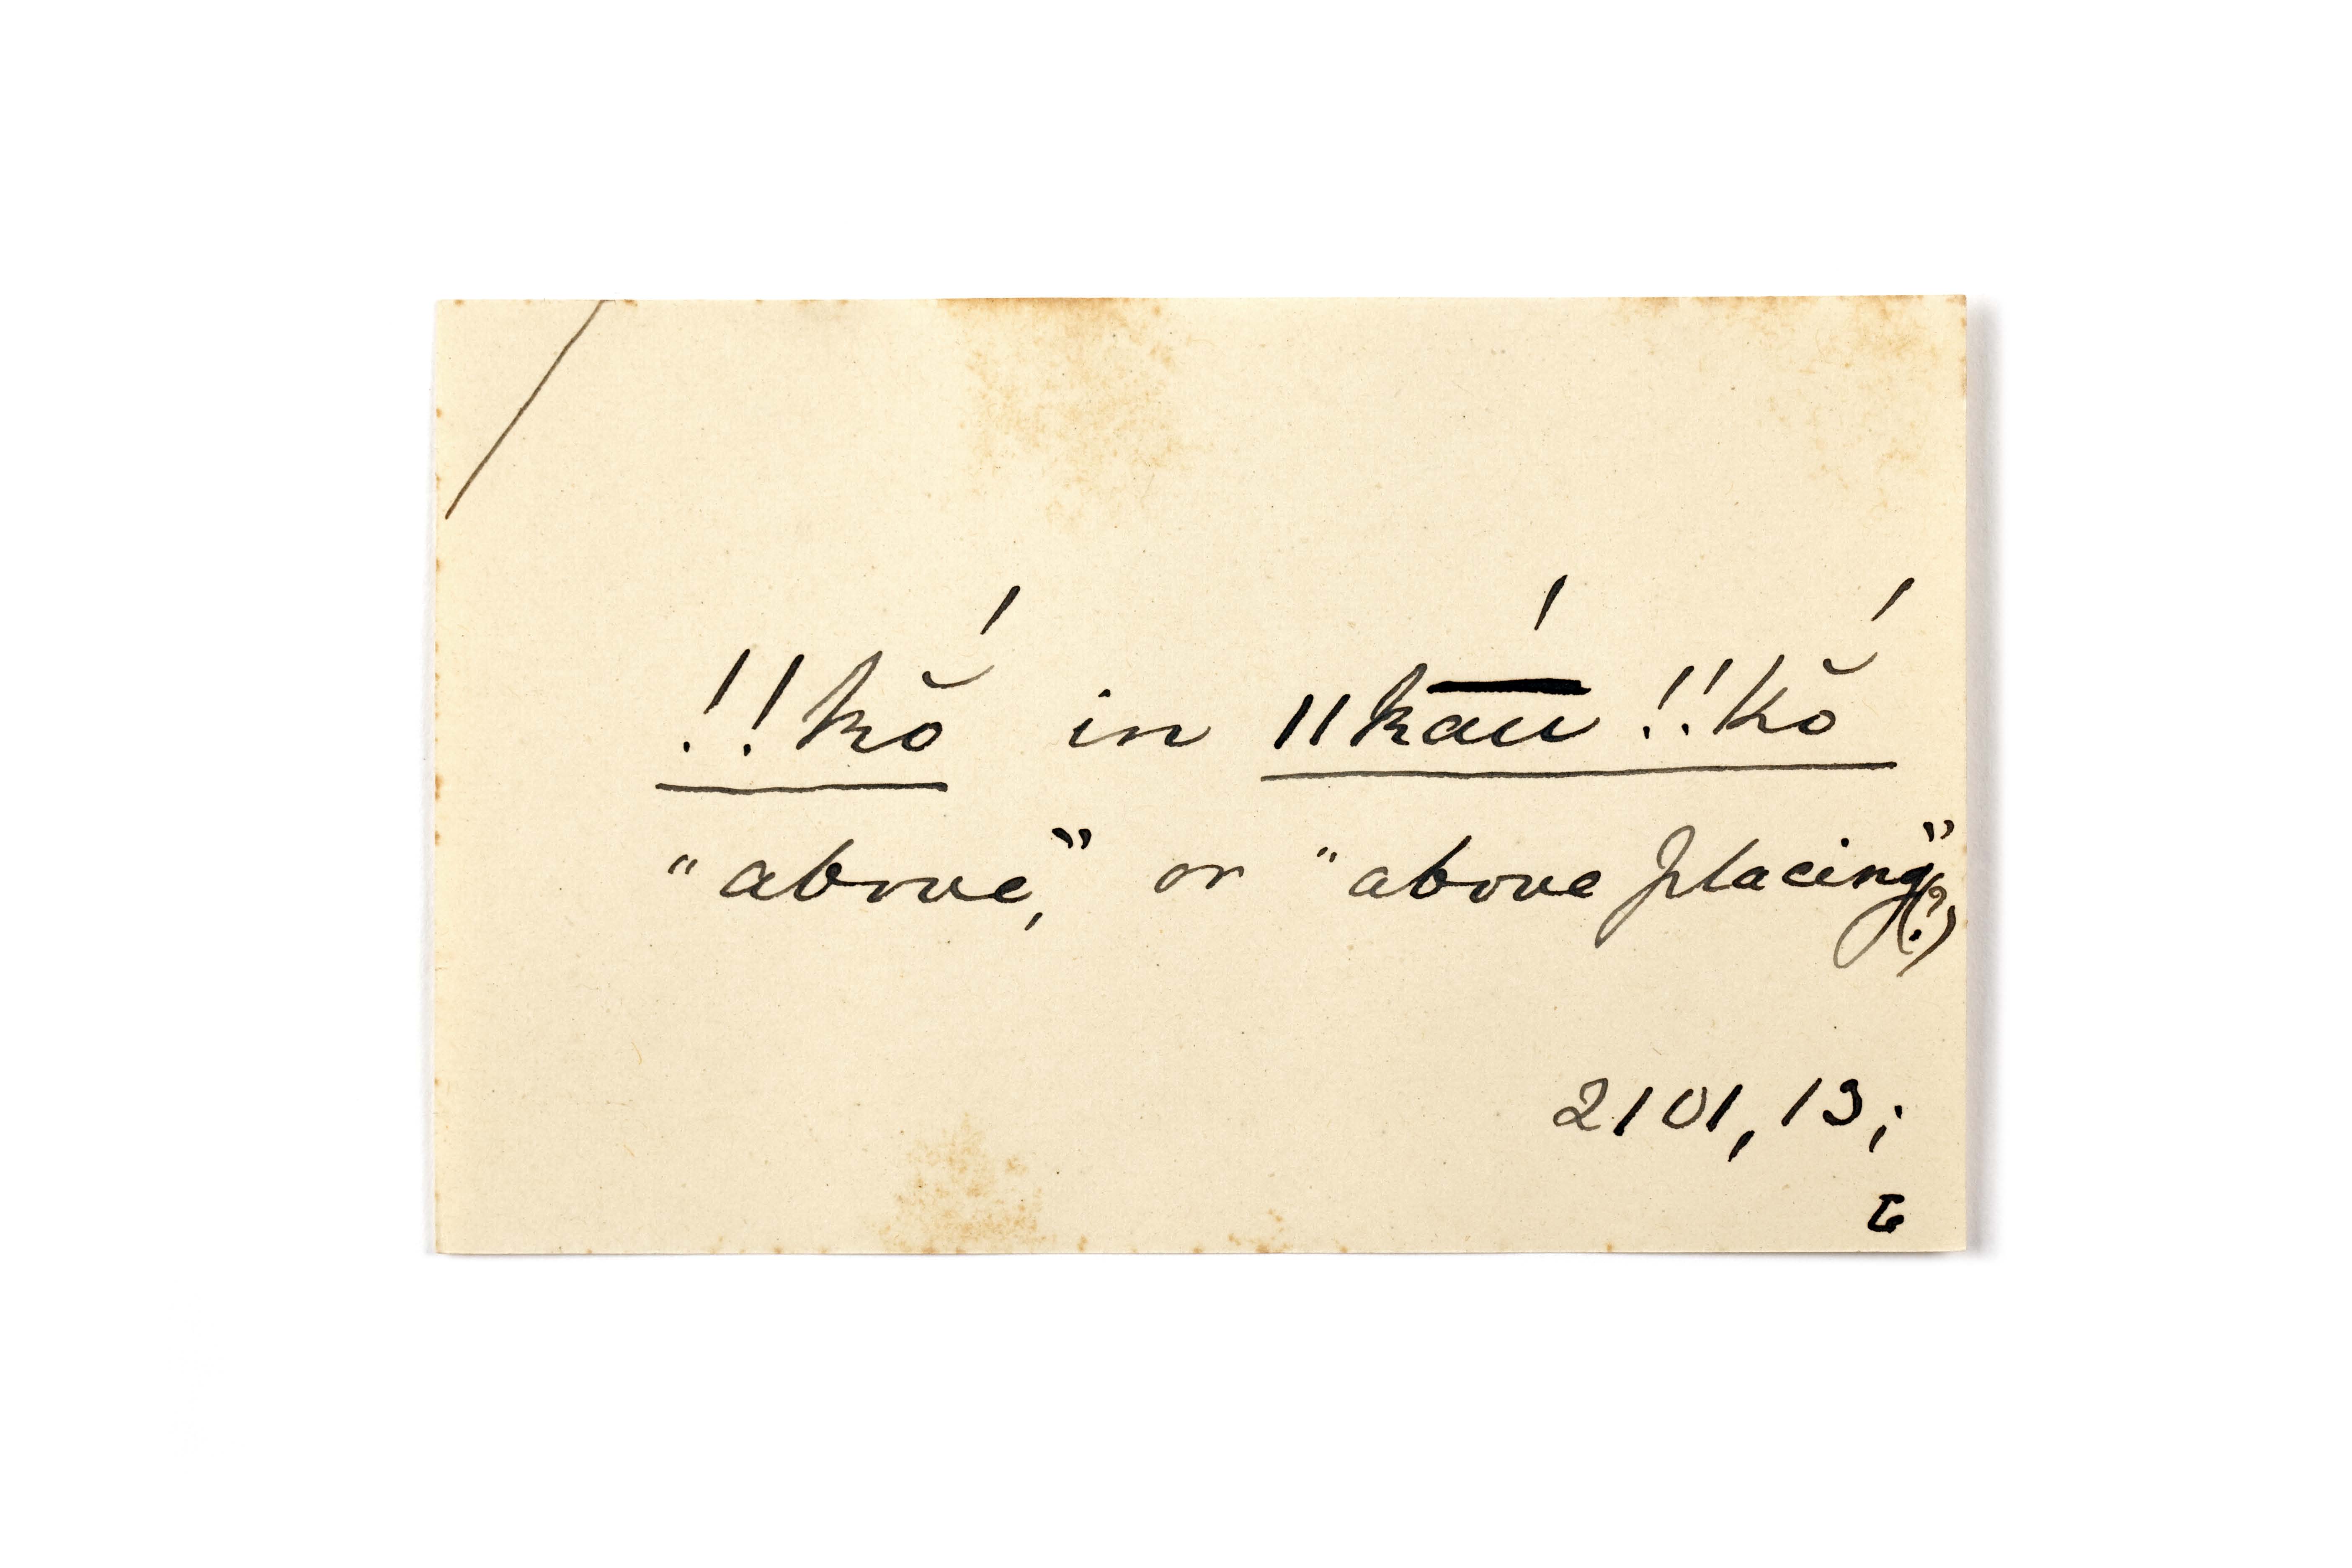 !!kŏ́ in ǁka̅ú !!kŏ́
"above," or "above placing"(?)
2101, 13;
G